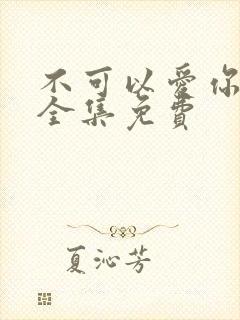 不可以愛你
全集免費
夏沁芳